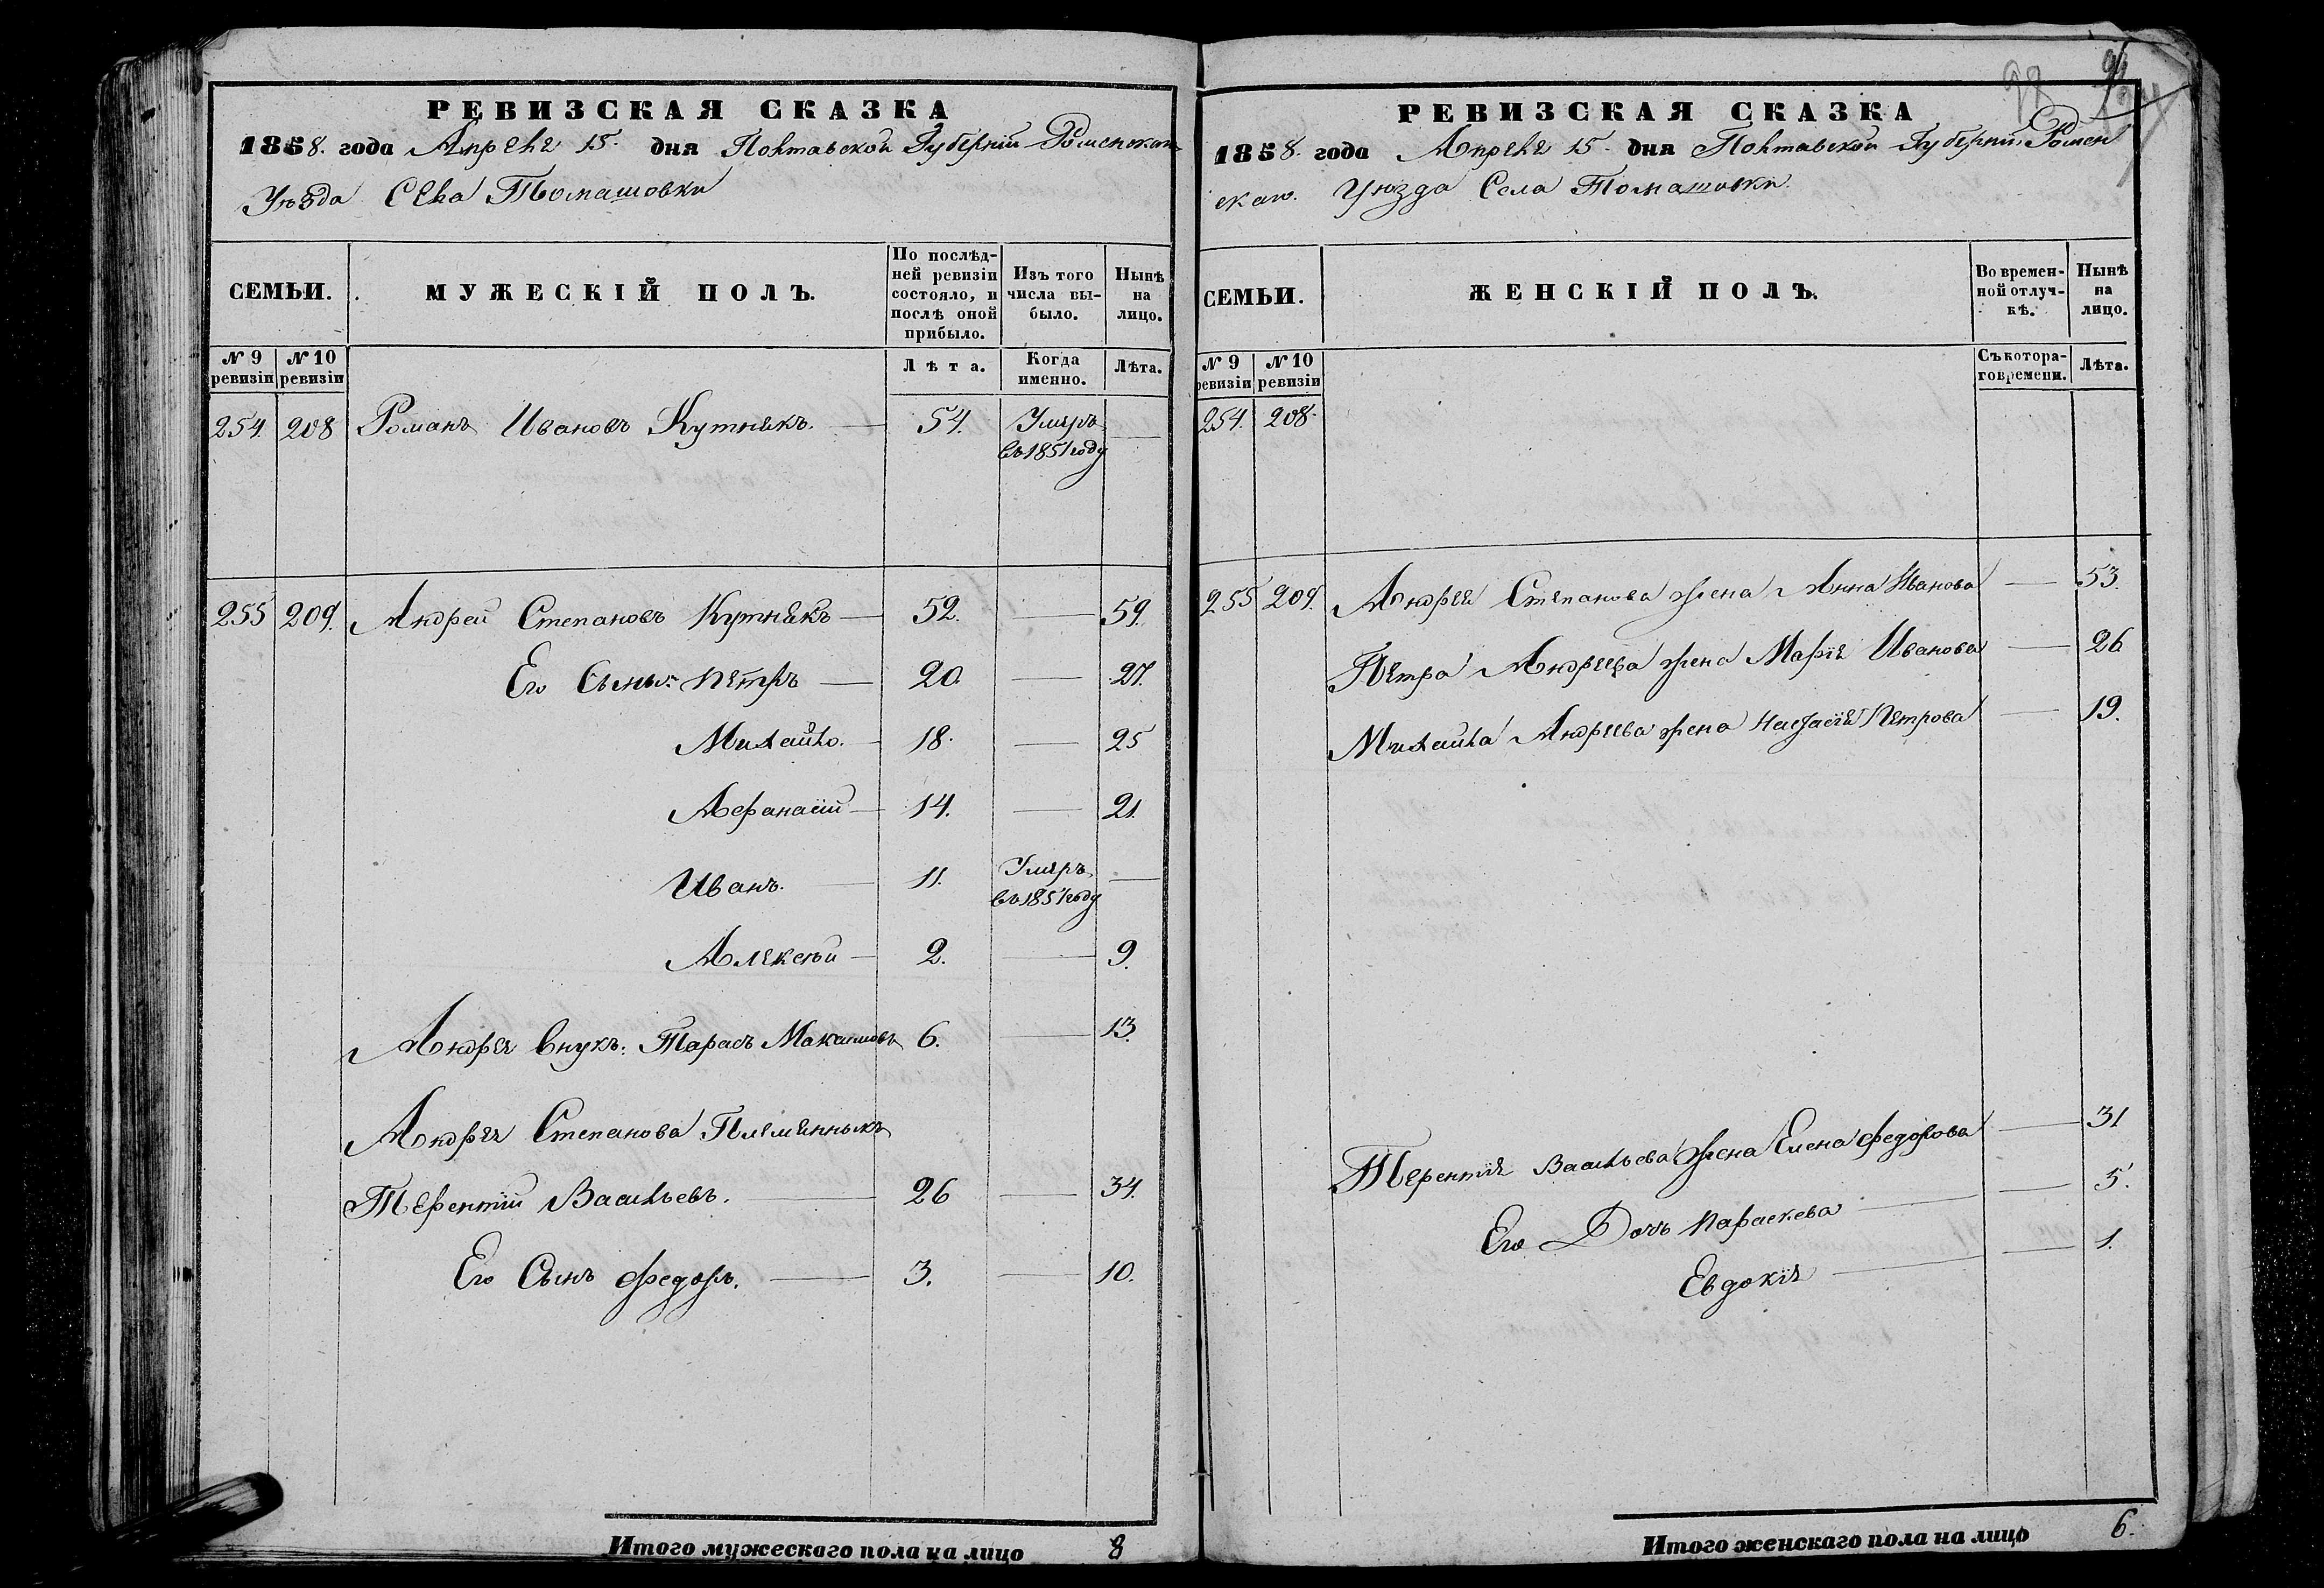 РЕВИЗСКАЯ СКАЗКА
1858. года Апреля 15. дня Полтавской Губерніи Роменскаго
Уѣзда Села Томашовки
СЕМЬИ.
МУЖЕСКІЙ ПОЛЪ.
По послѣд-
ней ревизіи
состояло, и
послѣ оной
прибыло.
Изъ того
числа вы-
было.
Нынѣ
на
лицо.
№ 9
ревизіи
№ 10
ревизіи
Лѣта.
Когда
именно.
Лѣта.
254. 208 Романъ Ивановъ Кутнякъ. — 54. Умеръ —
въ 1851 году
255 209. Андрей Степановъ Кутнякъ — 52. — 59.
Его Сыны: Петръ — 20. — 27.
Михайло. — 18. — 25
Афанасій — 14. — 21.
Иванъ. — 11. Умеръ —
въ 1851 году
Алексѣй — 2. — 9.
Андрея внукъ: Тарасъ Максимовъ 6. — 13.
Андрея Степанова Племянныкъ
Терентій Васильевъ. — 26 — 34.
Его Сынъ Федоръ. — 3. — 10.
Итого мужескаго пола на лицо 8
98
РЕВИЗСКАЯ СКАЗКА
1858. года Апреля 15. дня Полтавской Губерніи Ромен
скаго. Уѣзда Села Томашовки.
СЕМЬИ.
ЖЕНСКІЙ ПОЛЪ.
Во времен-
ной отлуч-
кѣ.
Нынѣ
на
лицо.
№ 9
ревизіи
№ 10
ревизіи
Съ котора-
го времени.
Лѣта.
254. 208.
255 209. Андрея Степанова жена Анна Иванова — 53.
Петра Андреева жена Марія Иванова — 26
Михайла Андреева жена Петрова — 19.
Терентія Васильева жена Елена Федорова — 31
Его Дочь Параскева — 5.
Евдокія — 1.
Итого женскаго пола на лицо 6.